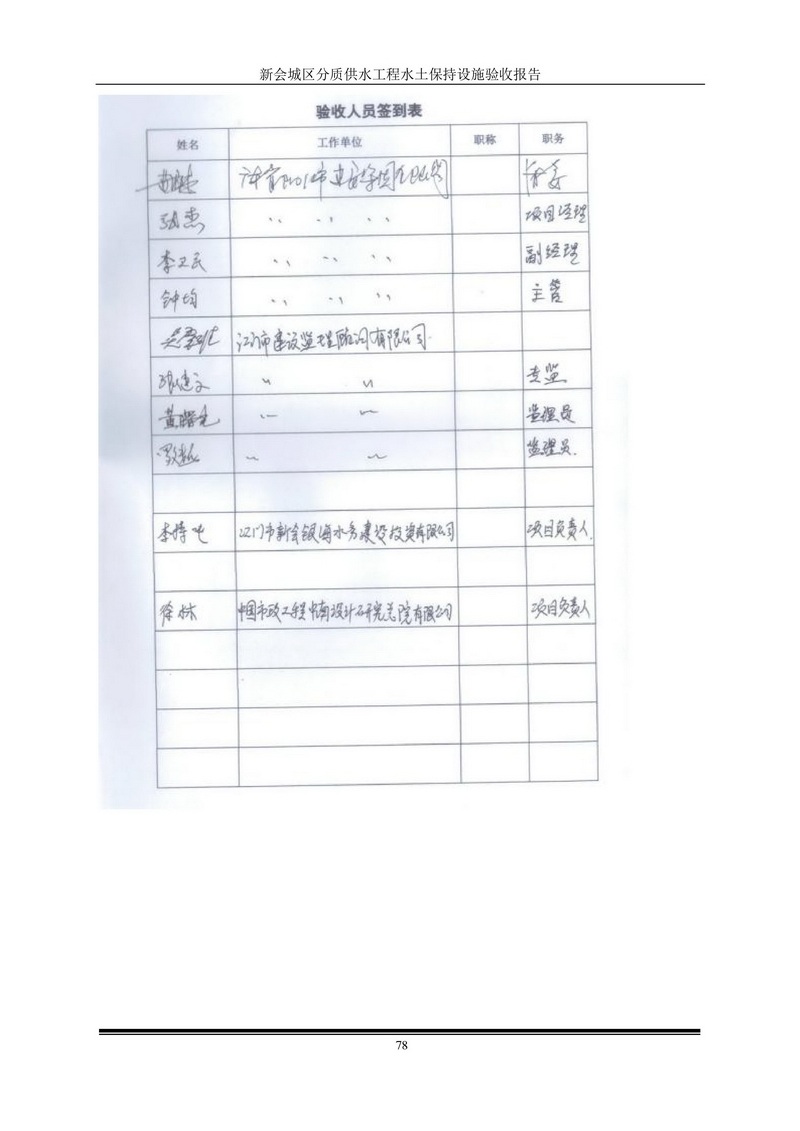 新会城区分质供水工程水土保持设施验收报告
验收人员签到表
姓名 工作单位 职称 职务
杰 〃 〃 〃 项目经理
李卫民 〃 〃 〃 副经理
钟均 〃 〃 〃 主管
江门市建设监理顾问有限公司
张建文 〃 〃 专监
黄曙光 〃 〃 监理员
〃 〃 监理员
李持 江门市新会银海水务建设投资有限公司 项目负责人
徐林 中国市政工程中南设计研究总院有限公司 项目负责人
78